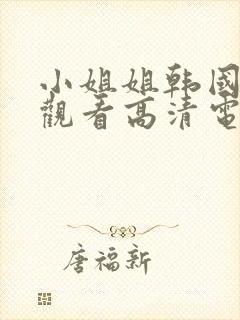 小姐姐韩國
觀看高清電
唐福新